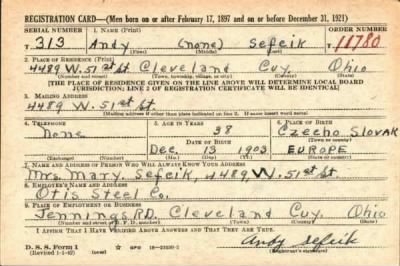 REGISTRATION CARD—(Men born on or after February 17, 1897 and on or before December 31, 1921)
SERIAL NUMBER 1. NAME (Print) ORDER NUMBER
T 313 Andy (none) Sefcik 11780
(First) (Middle) (Last)
2. PLACE OF RESIDENCE (Print)
4489 W. 51st St Cleveland Cuy. Ohio
(Number and street) (Town, township, village, or city) (County) (State)
[THE PLACE OF RESIDENCE GIVEN ON THE LINE ABOVE WILL DETERMINE LOCAL BOARD
JURISDICTION; LINE 2 OF REGISTRATION CERTIFICATE WILL BE IDENTICAL]
3. MAILING ADDRESS
4489 W. 51st St.
[Mailing address if other than place indicated on line 2. If same insert word same]
4. TELEPHONE 5. AGE IN YEARS 6. PLACE OF BIRTH
None 38 Czecho SLOVAK
DATE OF BIRTH (Town or county)
Dec. 13 1903 EUROPE
(Exchange) (Number) (Mo.) (Day) (Yr.) (State or country)
7. NAME AND ADDRESS OF PERSON WHO WILL ALWAYS KNOW YOUR ADDRESS
Mrs. Mary. Sefcik, 4489, W. 51st St.
8. EMPLOYER'S NAME AND ADDRESS
Otis Steel Co.
9. PLACE OF EMPLOYMENT OR BUSINESS
Jennings RD. Cleveland Cuy. Ohio
(Number and street or R. F. D. number) (Town) (County) (State)
I AFFIRM THAT I HAVE VERIFIED ABOVE ANSWERS AND THAT THEY ARE TRUE.
D. S. S. Form 1 GPO
(Revised 1-1-42) (over) Andy Sefcik
(Registrant's signature)